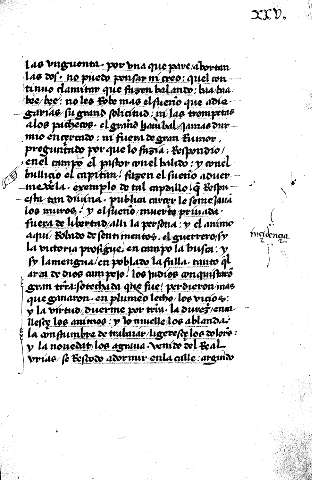 XXV.
las vnguenta. por vna que pare abortan
las dos. no puedo pensar ni creo: quel con
tinuo clamitar que fazen balando: bia bia
bee bee: no les Robe mas el sueño que adie
garias su grand solicitud: ni las trompetas
alos pachetos. el grand haníbal jamas dur
mio encercado: ni fuera de gran Rumor,
preguntado por que lo fazia: Respondio/
en el campo el pastor conel balido: y conel
bullicio el capitan: fazen el sueño aduer
mexela. exemplo de tal capdillo: q Respu
esta tan diuina. publica carcer le somesaua
los muros: y el sueño muerte priuada:
fuera de libertad alli la persona: y el animo
aqui. Robado de sentimentos. el guerrero/y
la victoria prosigue. en campo la busca: y
sy la mengua. en poblado la falla. tanto ql
arai de dios campejo. los judios conquistaron
gran trra. so techada que fue: perdieron mas
que ganaron. en plumeo lecho. los vicios:
y la virtud. duerme por trra. la dureza ena
llesce los animos: y lo muelle los ablanda.
la constumbre de trabaiar. ligeresce los dolores:
y la nouedat los agraua. venido del Real
vrias. se Recordo a dormir en la calle: arguido